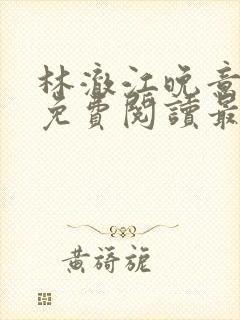 林澈江晚音
免費閱讀最
黃蒟旎